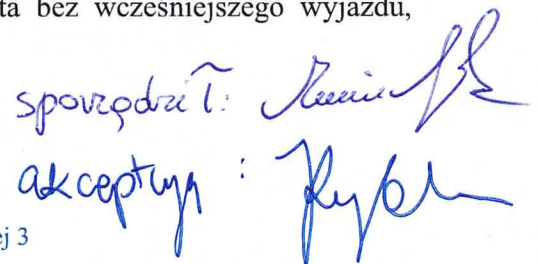 ta bez wcześniejszego wyjazdu,
sporządził:
akceptuję :
ej 3